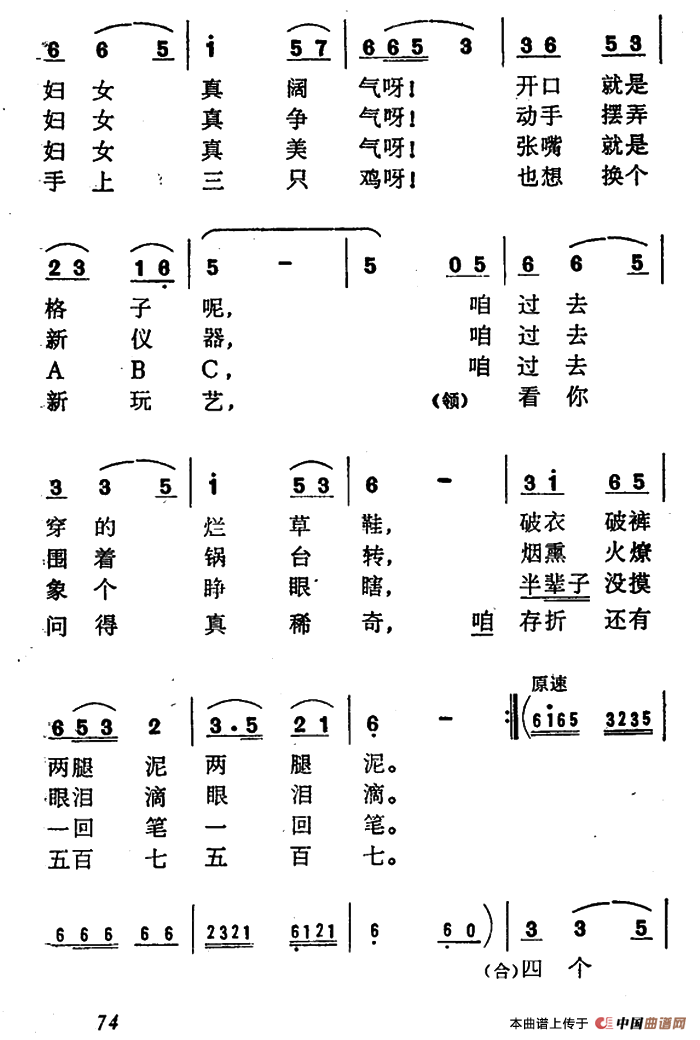 6 6 5 | i 5 7 | 6 6 5 3 | 3 6 5 3
妇女 真 阔 气呀！ 开口 就是
妇女 真 争 气呀！ 动手 摆弄
妇女 真 美 气呀！ 张嘴 就是
手上 三 只 鸡呀！ 也想 换个
2 3 1 6 | 5 - | 5 0 5 | 6 6 5
格 子 呢， 咱 过去
新 仪 器， 咱 过去
A B C， 咱 过去
新 玩 艺， （领） 看你
3 3 5 | i 5 3 | 6 - | 3 i 6 5
穿的 烂 草 鞋， 破衣 破裤
围着 锅 台 转， 烟熏 火燎
象个 睁 眼 瞎， 半辈子 没摸
问得 真 稀 奇， 咱 存折 还有
原速
6 5 3 2 | 3 . 5 2 1 | 6 - :‖ ( 6 i 6 5 3 2 3 5
两腿 泥 两 腿 泥。
眼泪 滴 眼 泪 滴。
一回 笔 一 回 笔。
五百 七 五 百 七。
6 6 6 6 6 | 2 3 2 1 6 1 2 1 | 6 6 0 ) | 3 3 5
（合）四 个
74
本曲谱上传于 中国曲谱网